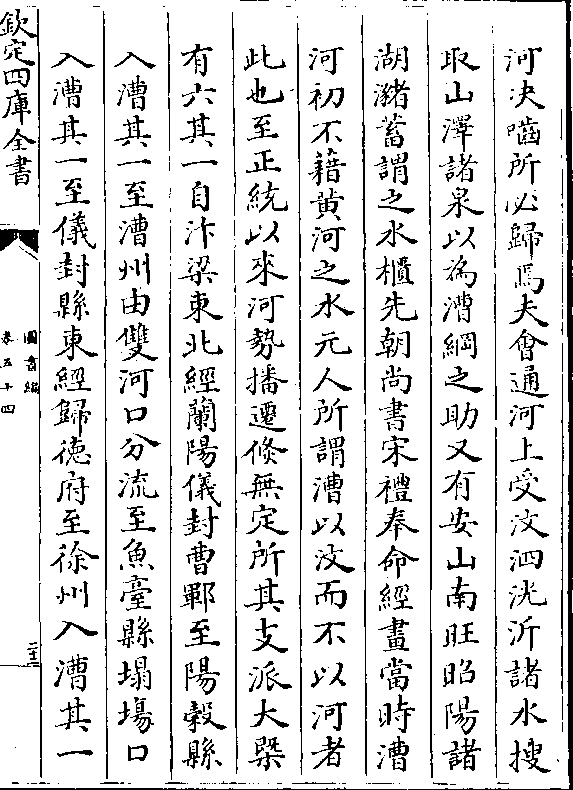 河決嚙所必歸焉夫會通河上受汶泗洸沂諸水搜
取山澤諸泉以為漕綱之助又有安山南旺昭陽諸
湖瀦蓄謂之水櫃先朝尚書宋禮奉命經畫當時漕
河初不藉黄河之水元人所謂漕以汶而不以河者
此也至正統以來河勢播遷倐無定所其支派大槩
有六其一自汴梁東北經蘭陽儀封曹鄆至陽糓縣
入漕其一至漕州由雙河口分流至魚臺縣塌塲口
入漕其一至儀封縣東經歸徳府至徐州入漕其一
欽定四庫全書
圖書編
卷五十四
二十三